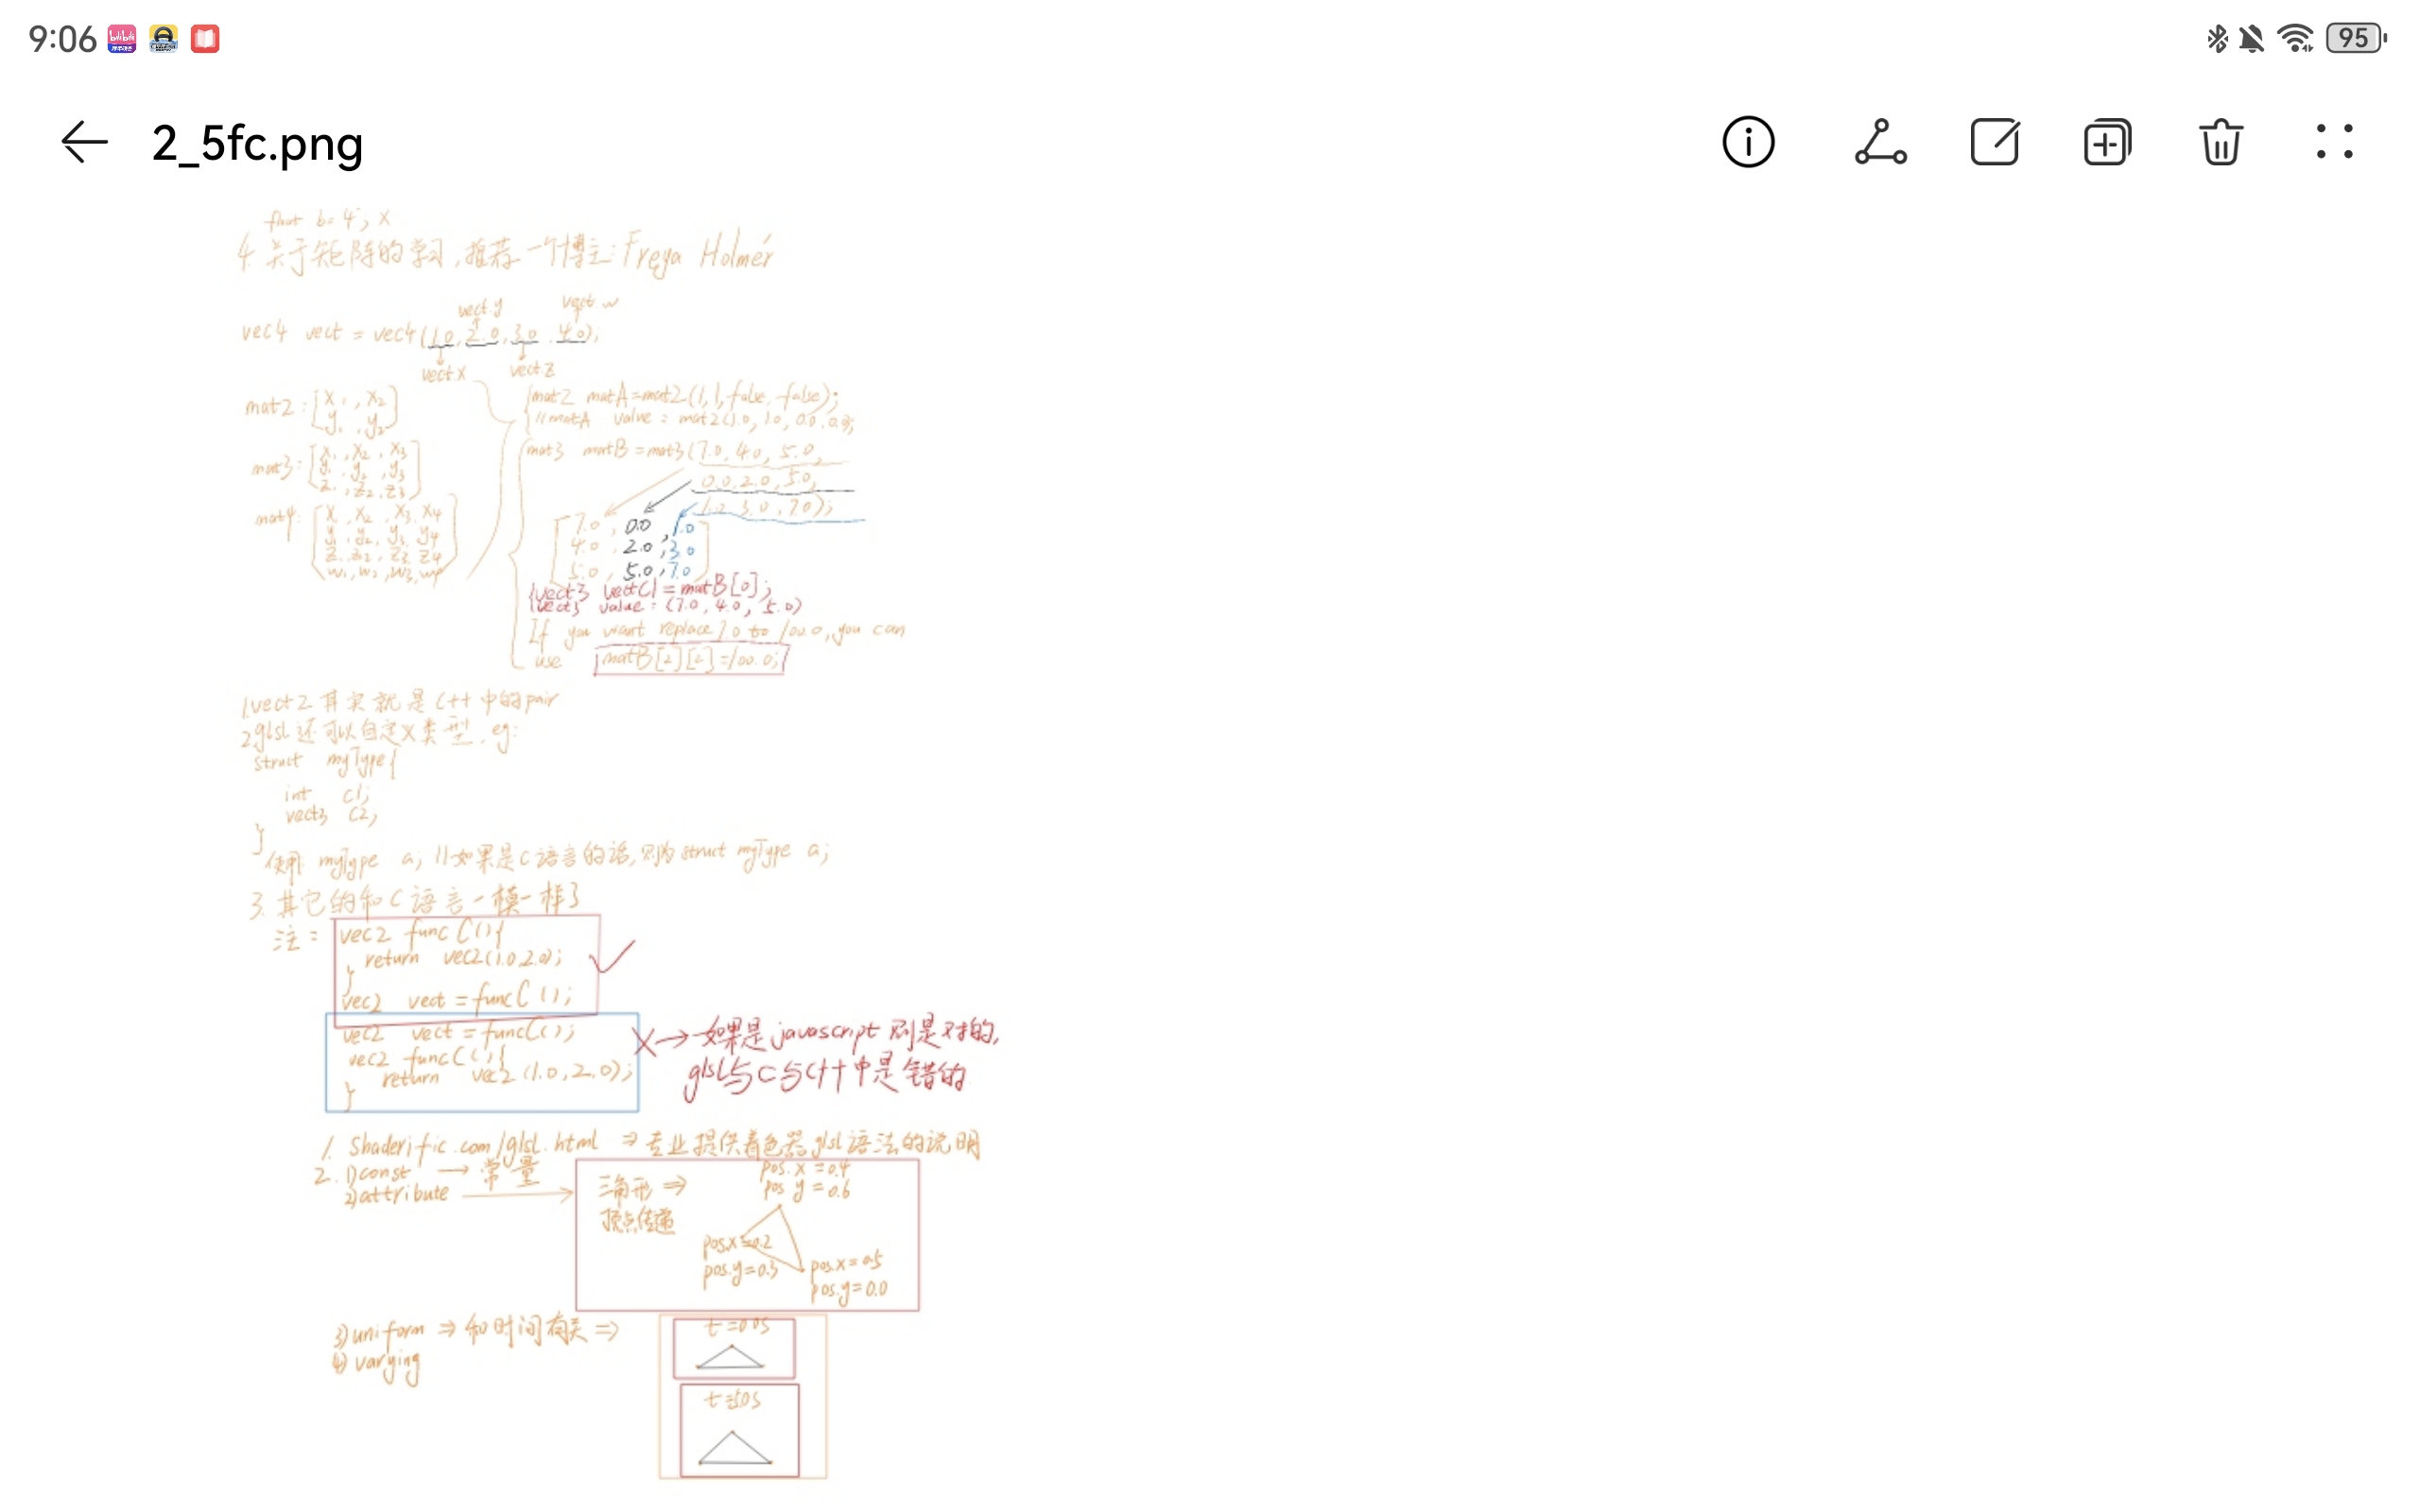 9:06
95
2_5fc.png
float b=4; X
4. 关于矩阵的学习,推荐一个博主:Freya Holmér
vect.y vect.w
vec4 vect = vec4(1.0,2.0,3.0,4.0);
vect.x vect.z
mat2:[x1,x2
y1,y2]
{mat2 matA=mat2(1,1,false,false);
//matA value: mat2(1.0,1.0,0.0,0.0);
mat3:[x1,x2,x3
y1,y2,y3
z1,z2,z3]
mat3 matB=mat3(7.0,4.0,5.0,
0.0,2.0,5.0,
1.0,3.0,7.0);
mat4:[x1,x2,x3,x4
y1,y2,y3,y4
z1,z2,z3,z4
w1,w2,w3,w4]
[7.0,0.0,1.0
4.0,2.0,3.0
5.0,5.0,7.0]
{vect3 vectC1=matB[0];
vect3 value:(7.0,4.0,5.0)
If you want replace 7.0 to 100.0,you can
use matB[2][2]=100.0;
1.vect2其实就是C++中的pair
2.glsl还可以自定义类型,eg:
struct myType{
int c1;
vect3 c2;
}
使用 myType a; //如果是C语言的话,则为struct myType a;
3.其它的和C语言一模一样了
注:vec2 funcC(){
return vec2(1.0,2.0);
}
vec2 vect=funcC();
vec2 vect=funcC();
vec2 funcC(){
return vec2(1.0,2.0);
}
X→如果是javascript则是对的,
glsl与C与C++中是错的
1. Shaderific.com/glsl.html ⇒专业提供着色器glsl语法的说明
2. 1)const → 常量
2)attribute
三角形⇒
顶点传递
pos.x=0.4
pos.y=0.6
pos.x=0.2
pos.y=0.3
pos.x=0.5
pos.y=0.0
3)uniform ⇒ 和时间有关 ⇒
4)varying
t=0.0s
t=5.0s